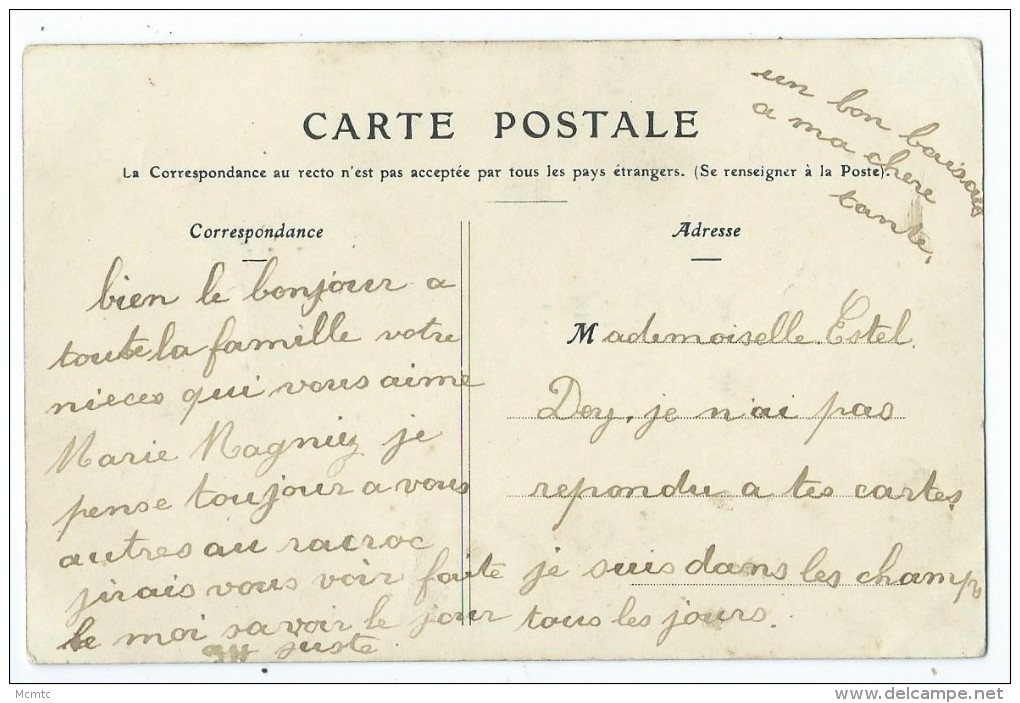 un bon baisous
a ma chere
tante.
CARTE POSTALE
La Correspondance au recto n'est pas acceptée par tous les pays étrangers. (Se renseigner à la Poste).
Correspondance
bien le bonjour a
toute la famille votre
nieces qui vous aime
Marie Magniez je
pense toujour a vous
autres au racroc
jirais vous voir faite
le moi savoir le jour
juste
Adresse
Mademoiselle. Estel.
Dey, je n'ai pas
repondu a tes cartes,
je suis dans les champs
tous les jours.
Mcmtc
www.delcampe.net